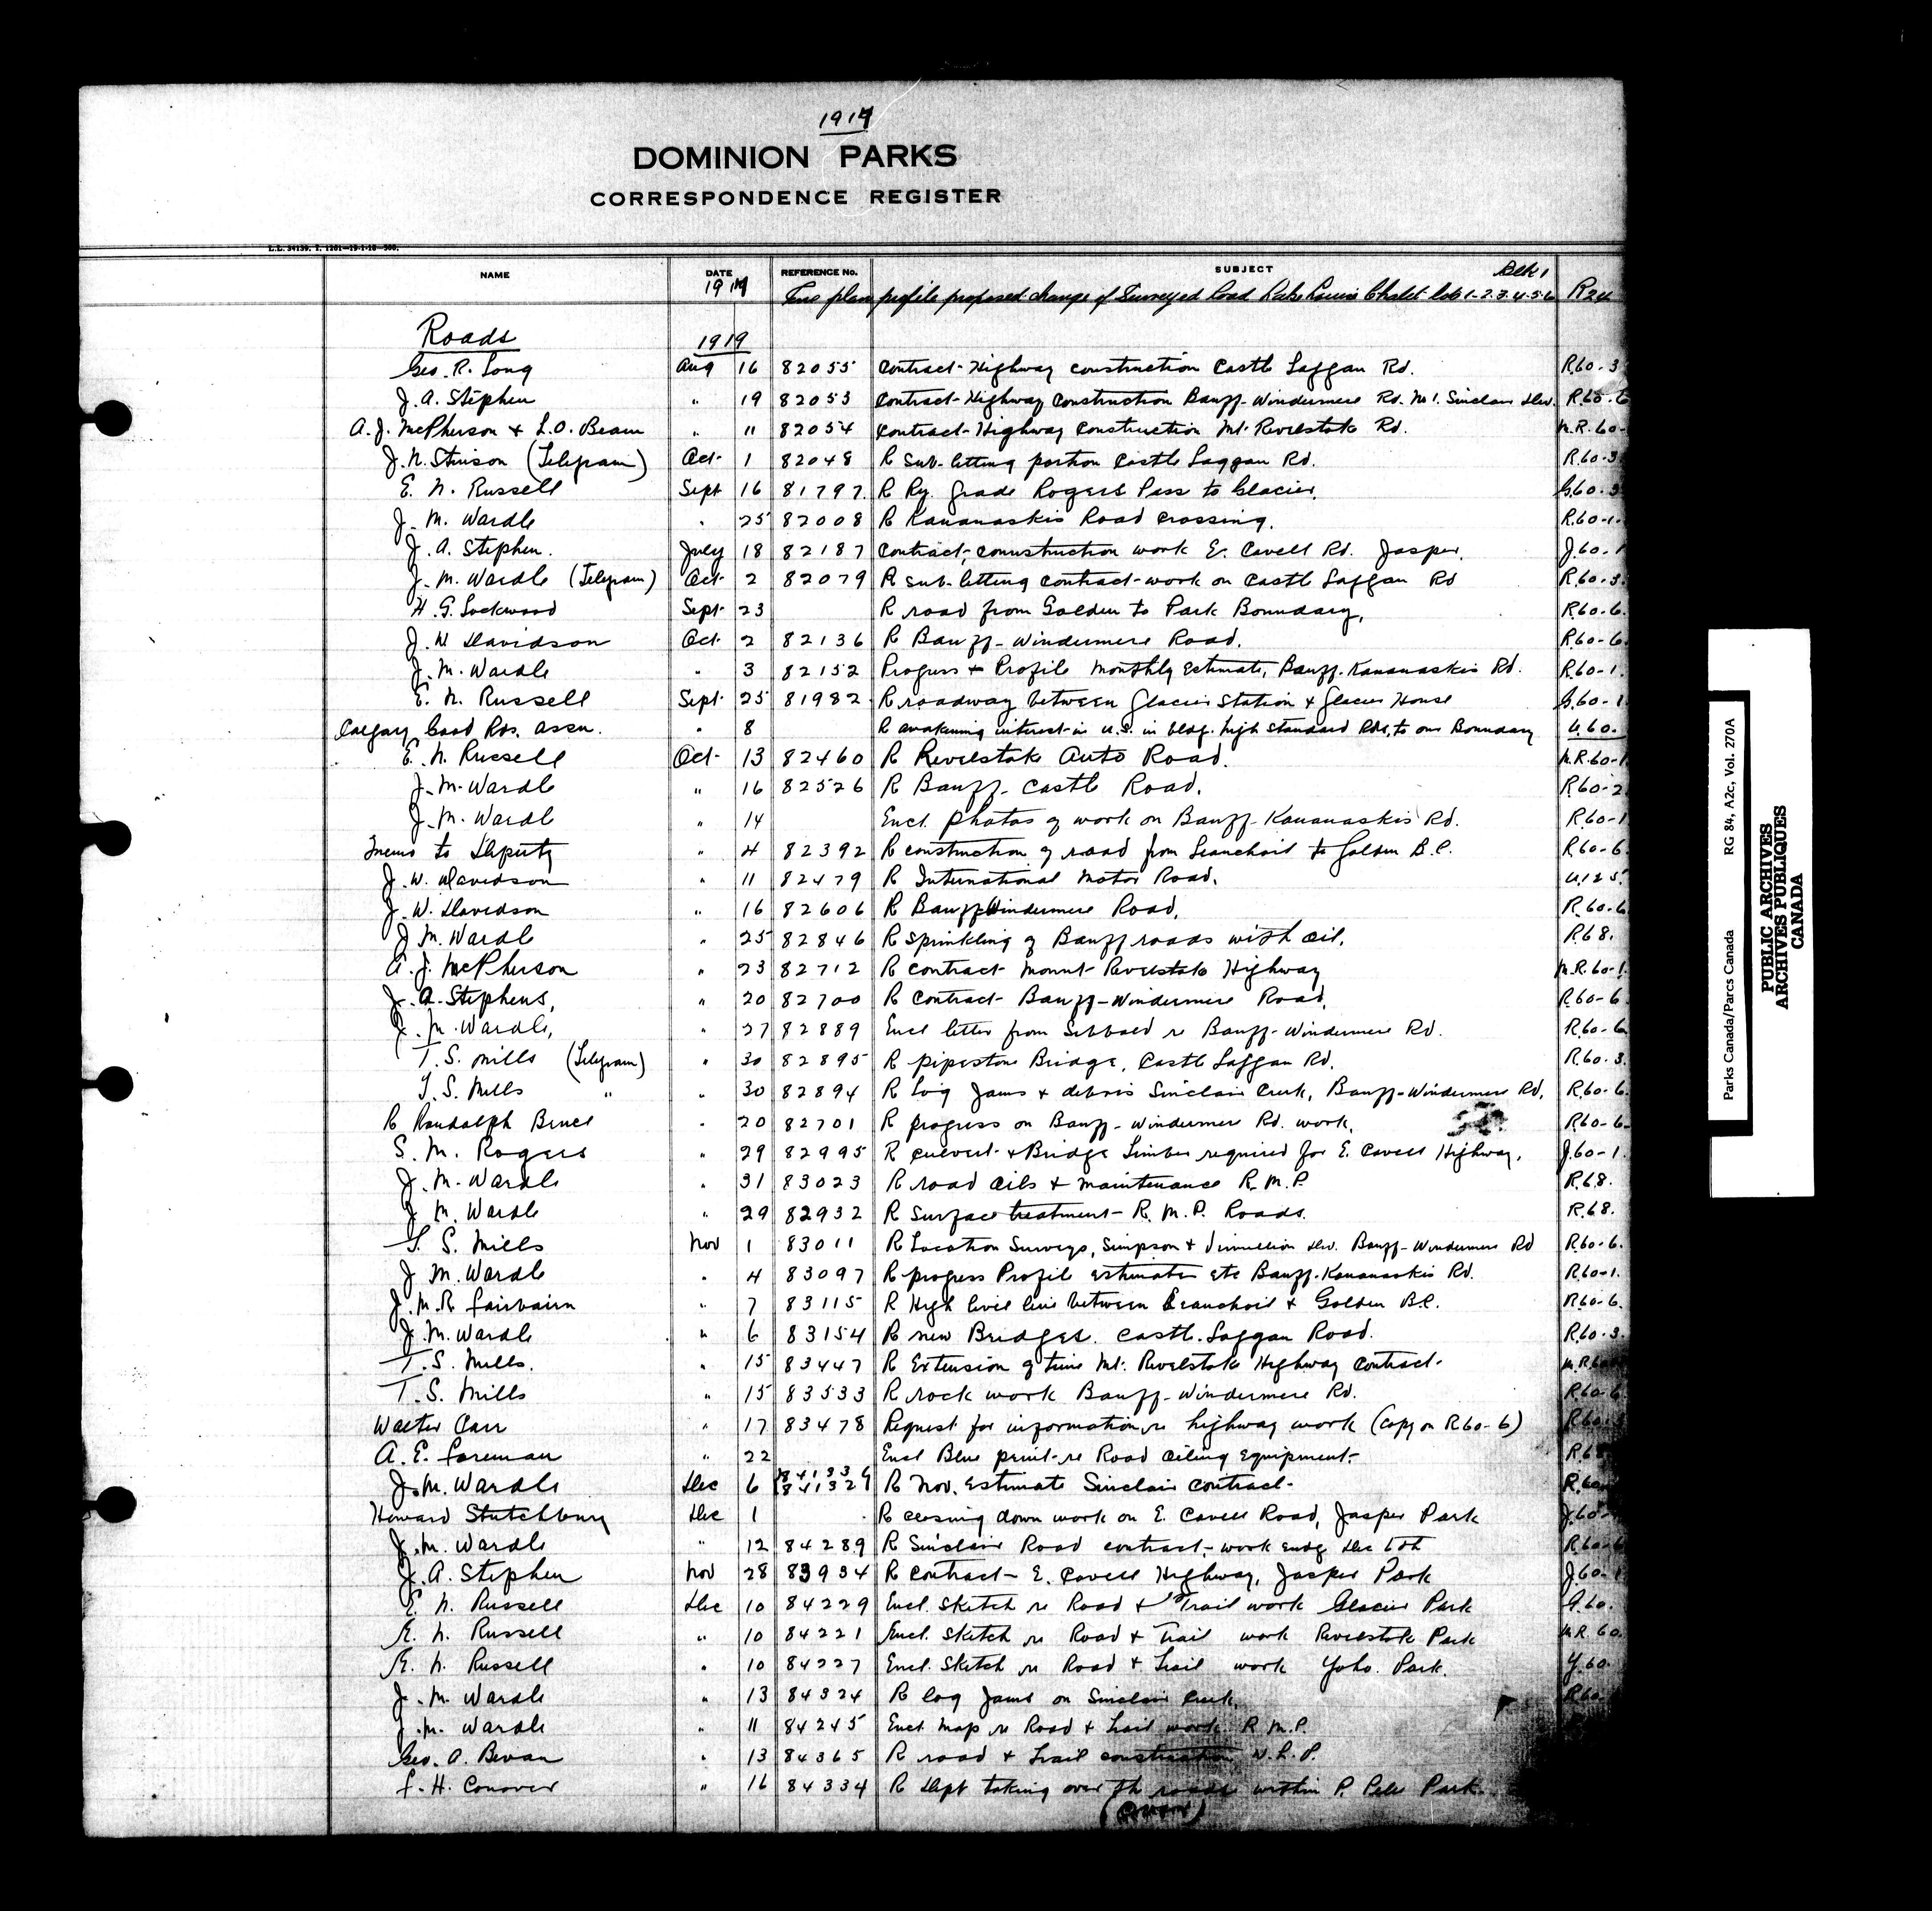 1919
DOMINION PARKS
CORRESPONDENCE REGISTER
L.L. 34139. T. 1201—19-1-18—500.
NAME DATE REFERENCE No. SUBJECT Blk 1
1919 Two plans profile proposed change of Surveyed Road Lake Louise Chalet lots 1-2-3-4-5-6 R24
Roads 1919
Geo. R. Long Aug 16 82055 Contract-Highway construction Castle Laggan Rd. R60-3
J. A. Stephen " 19 82053 Contract-Highway Construction Banff-Windermere Rd. No 1. Sinclair Div. R.60-6
A. J. McPherson & L.O. Beam " 11 82054 Contract-Highway Construction Mt. Revelstoke Rd. M.R. 60-
J. N. Stinson (Telegram) Oct. 1 82048 R Sub-letting portion Castle Laggan Rd. R.60-3
E. N. Russell Sept 16 81797 R Ry. grade Rogers Pass to Glacier. G.60-3
J. M. Wardle " 25 82008 R Kananaskis Road Crossing. R.60-1.
J. A. Stephen. July 18 82187 Contract-connstruction work E. Cavell Rd. Jasper. J.60-1
J. M. Wardle (Telegram) Oct. 2 82079 R sub-letting contract-work on Castle Laggan Rd R.60-3.
H. G. Lockwood Sept. 23 R road from Golden to Park Boundary. R.60-6.
J. W. Davidson Oct. 2 82136 R Banff-Windermere Road. R.60-6
J. M. Wardle " 3 82152 Progress & Profile Monthly Estimate, Banff-Kananaskis Rd. R.60-1.
E. N. Russell Sept. 25 81982 R roadway between Glacier Station & Glacier House G.60-1
Calgary Good Rds. Assn. " 8 R awakening interest in U.S. in bldg. high standard Rds. to our Boundary U.60.
E. N. Russell Oct. 13 82460 R Revelstoke Auto Road. M.R.60-1
J. M. Wardle " 16 82526 R Banff-Castle Road. R.60-2
J. M. Wardl " 14 Encl. photos of work on Banff-Kananaskis Rd. R.60-1
Memo to Deputy " 4 82392 R construction of road from Leanchoil to Golden B.C. R.60-6
J. W. Davidson " 11 82479 R International Motor Road. U.125.
J. W. Davidson " 16 82606 R Banff-Windermere Road. R.60-6
J. M. Wardle " 25 82846 R sprinkling of Banff roads with oil. R.68.
A. J. McPherson " 23 82712 R contract Mount Revelstoke Highway M.R.60-1.
J. A. Stephens, " 20 82700 R Contract Banff-Windermere Road. R.60-6
J. M. Wardle, " 27 82889 Encl letter from Sibbald re Banff-Windermere Rd. R.60-6
T. S. Mills (Telegram) " 30 82895 R pipestone Bridge, Castle Laggan Rd. R.60-3.
T. S. Mills " " 30 82894 R Log Jams & debris Sinclair Creek, Banff-Windermere Rd. R.60-6.
R Randolph Bruce " 20 82701 R progress on Banff-Windermere Rd. work. R.60-6
S. M. Rogers " 29 82995 R culvert & Bridge Timber required for E. Cavell Highway. J.60-1
J. M. Wardle " 31 83023 R road oils & maintenance R.M.P. R.68.
J. M. Wardle " 29 82932 R Surface treatment-R.M.P. Roads. R.68.
T. S. Mills Nov 1 83011 R Location Surveys, Simpson & Vermillion Div. Banff-Windermere Rd R.60-6.
J. M. Wardle " 4 83097 R progress Profile estimates etc Banff-Kananaskis Rd. R.60-1.
J. M. R. Fairbairn " 7 83115 R High level line between Leanchoil & Golden B.C. R.60-6.
J. M. Wardle " 6 83154 R new Bridges. Castle-Laggan Road. R.60-3.
T. S. Mills. " 15 83447 R Extension of time Mt. Revelstoke Highway Contract- M.R.60
T. S. Mills " 15 83533 R rock work Banff-Windermere Rd. R.60-6
Walter Carr " 17 83478 Request for information re highway work (Copy on R60-6) R60-3
A. E. Foreman " 22 Encl Blue print re Road oiling Equipment. R.68
J. M. Wardle Dec 6 84132 R Nov. Estimate Sinclair Contract- R.60
Howard Stutchbury Dec 1 R closing down work on E. Cavell Road, Jasper Park J.60-
J. M. Wardle " 12 84289 R Sinclair Road contract-work endg Dec 6th R.60-6
J. A. Stephen Nov 28 83934 R Contract-E. Cavell Highway, Jasper Park J.60-1
E. N. Russell Dec 10 84229 Encl. Sketch re Road & Trail work Glacier Park G.60.
E. N. Russell " 10 84221 Encl. Sketch re Road & Trail work Revelstoke Park M.R. 60.
E. N. Russell " 10 84227 Encl. Sketch re Road & Trail work Yoho. Park. Y.60.
J. M. Wardle " 13 84324 R log Jams on Sinclair Creek. R.60.
J. M. Wardle " 11 84245 Encl. Map re Road & Trail work R.M.P.
Geo. A. Bevan " 13 84365 R road & trail construction W.L.P.
F. H. Conover " 16 84334 R Dept taking over the roads within P. Pele Park.
(over)
Parks Canada/Parcs Canada RG 84, A2c, Vol. 270A
PUBLIC ARCHIVES
ARCHIVES PUBLIQUES
CANADA